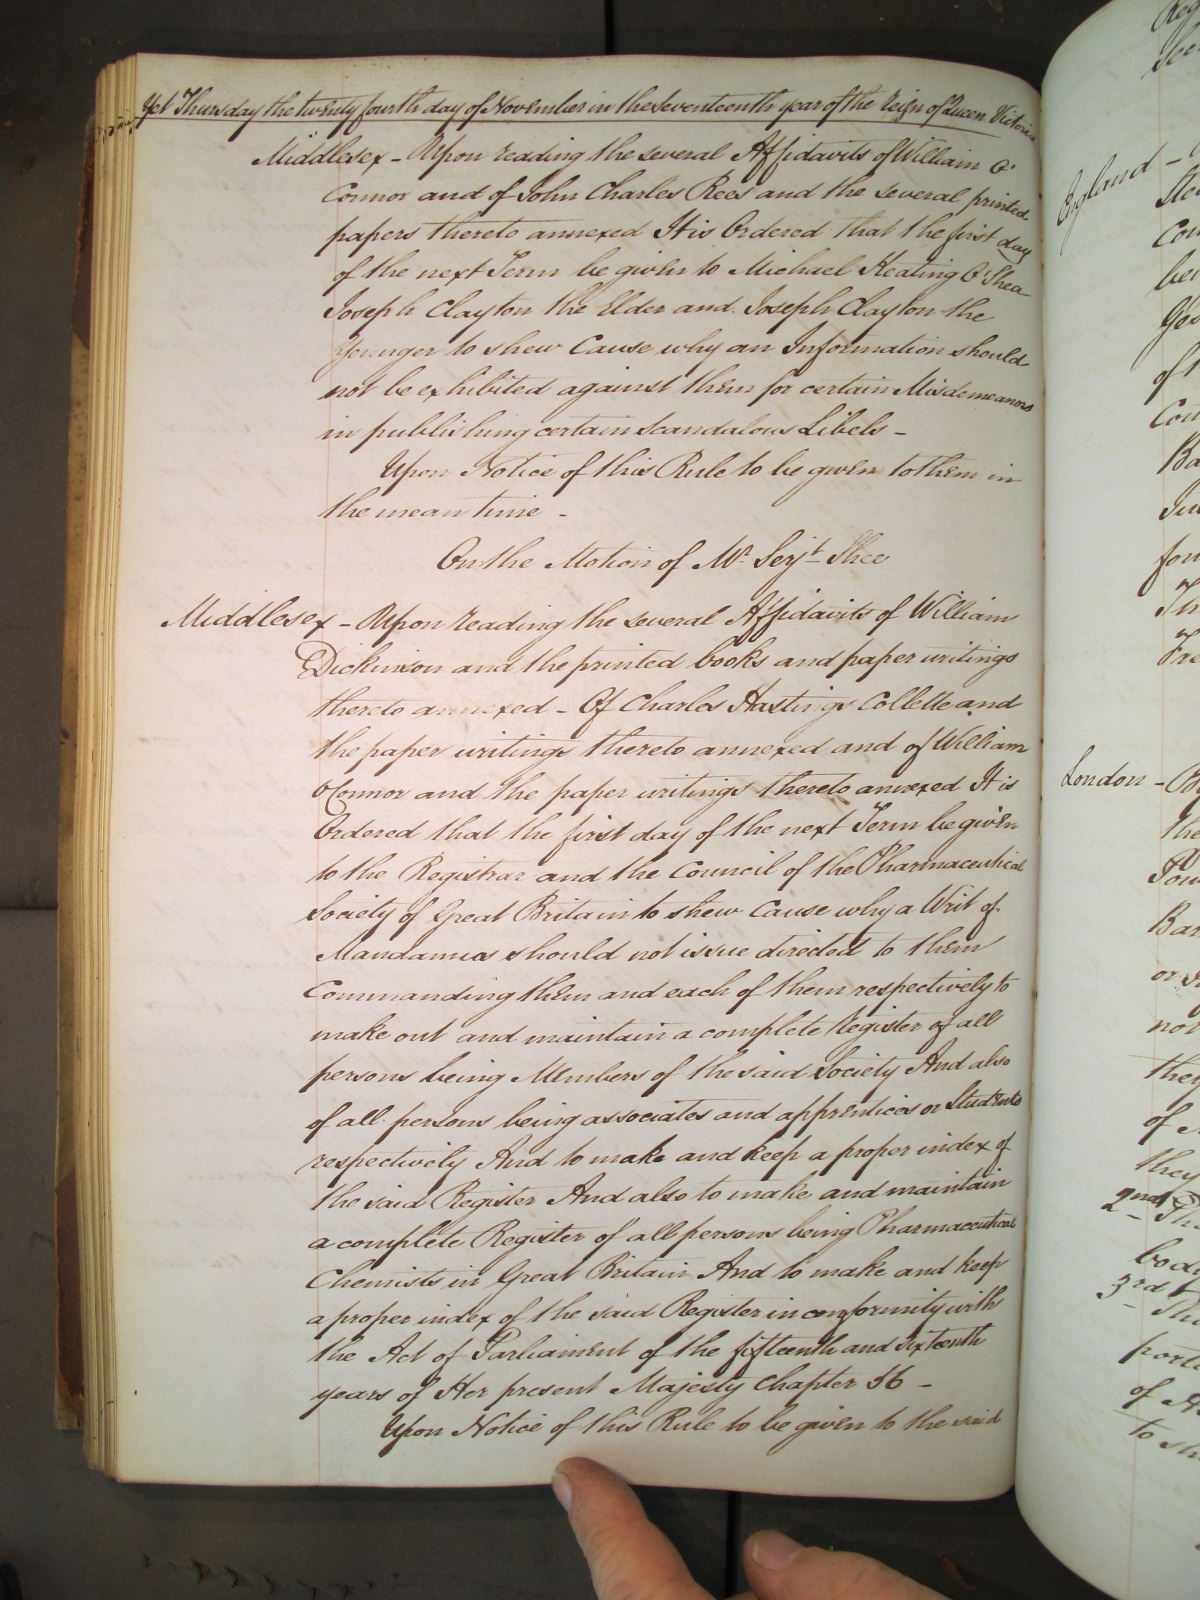 Yet Thursday the twenty fourth day of November in the seventeenth year of the Reign of Queen Victoria
Middlesex - Upon reading the several Affidavits of William O'
Connor and of John Charles Rees and the several printed
papers thereto annexed It is Ordered that the first day
of the next Term be given to Michael Keating O'Shea
Joseph Clayton the Elder and Joseph Clayton the
Younger to shew Cause why an Information should
not be exhibited against them for certain Misdemeanors
in publishing certain scandalous Libels -
Upon Notice of this Rule to be given to them in
the mean time -
On the Motion of Mr. Serjt. Shee
Middlesex - Upon reading the several Affidavits of William
Dickinson and the printed books and paper writings
thereto annexed - Of Charles Hastings Collette and
the paper writings thereto annexed and of William
O'Connor and the paper writings thereto annexed It is
Ordered that the first day of the next Term be given
to the Registrar and the Council of the Pharmaceutical
Society of Great Britain to shew Cause why a Writ of
Mandamus should not issue directed to them
Commanding them and each of them respectively to
make out and maintain a complete Register of all
persons being Members of the said Society And also
of all persons being associates and apprentices or Students
respectively And to make and keep a proper index of
the said Register And also to make and maintain
a complete Register of all persons being Pharmaceutical
Chemists in Great Britain And to make and keep
a proper index of the said Register in conformity with
the Act of Parliament of the fifteenth and sixteenth
years of Her present Majesty Chapter 56 -
Upon Notice of this Rule to be given to the said
England -
London -
they
of
they
2nd
3rd